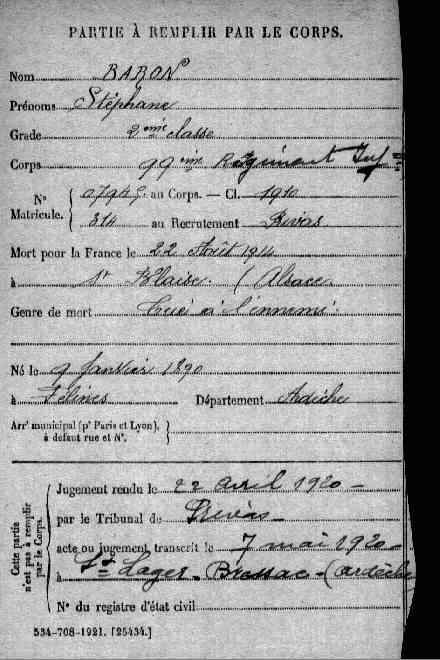 PARTIE À REMPLIR PAR LE CORPS.
Nom BARON
Prénoms Stéphane
Grade 2ème classe
Corps 99me Régiment Inf
Nº Matricule. { 07945 au Corps. — Cl. 1910
314 au Recrutement Privas
Mort pour la France le 22 Août 1914
à St Blaise (Alsace
Genre de mort Tué à l'ennemi
Né le 9 Janvier 1890
à Félines Département Ardèche
Arrt municipal (pr Paris et Lyon), à défaut rue et Nº. }
Cette partie n'est pas à remplir par le Corps.
Jugement rendu le 22 avril 1920 —
par le Tribunal de Privas —
acte ou jugement transcrit le 7 mai 1920 —
à St Lager-Bressac - (ardèche
Nº du registre d'état civil
534-708-1921. [25434.]